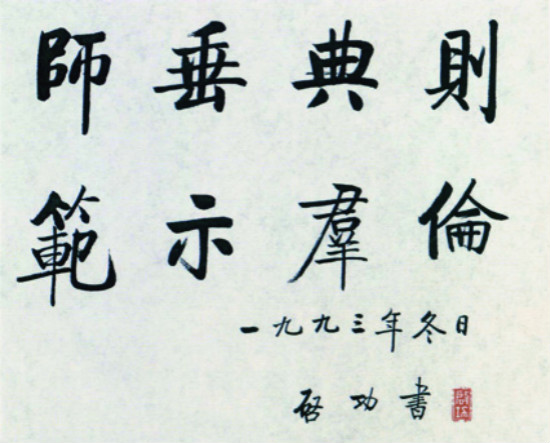 師垂典則
範示羣倫
一九九三年冬日
啓功書
啓功